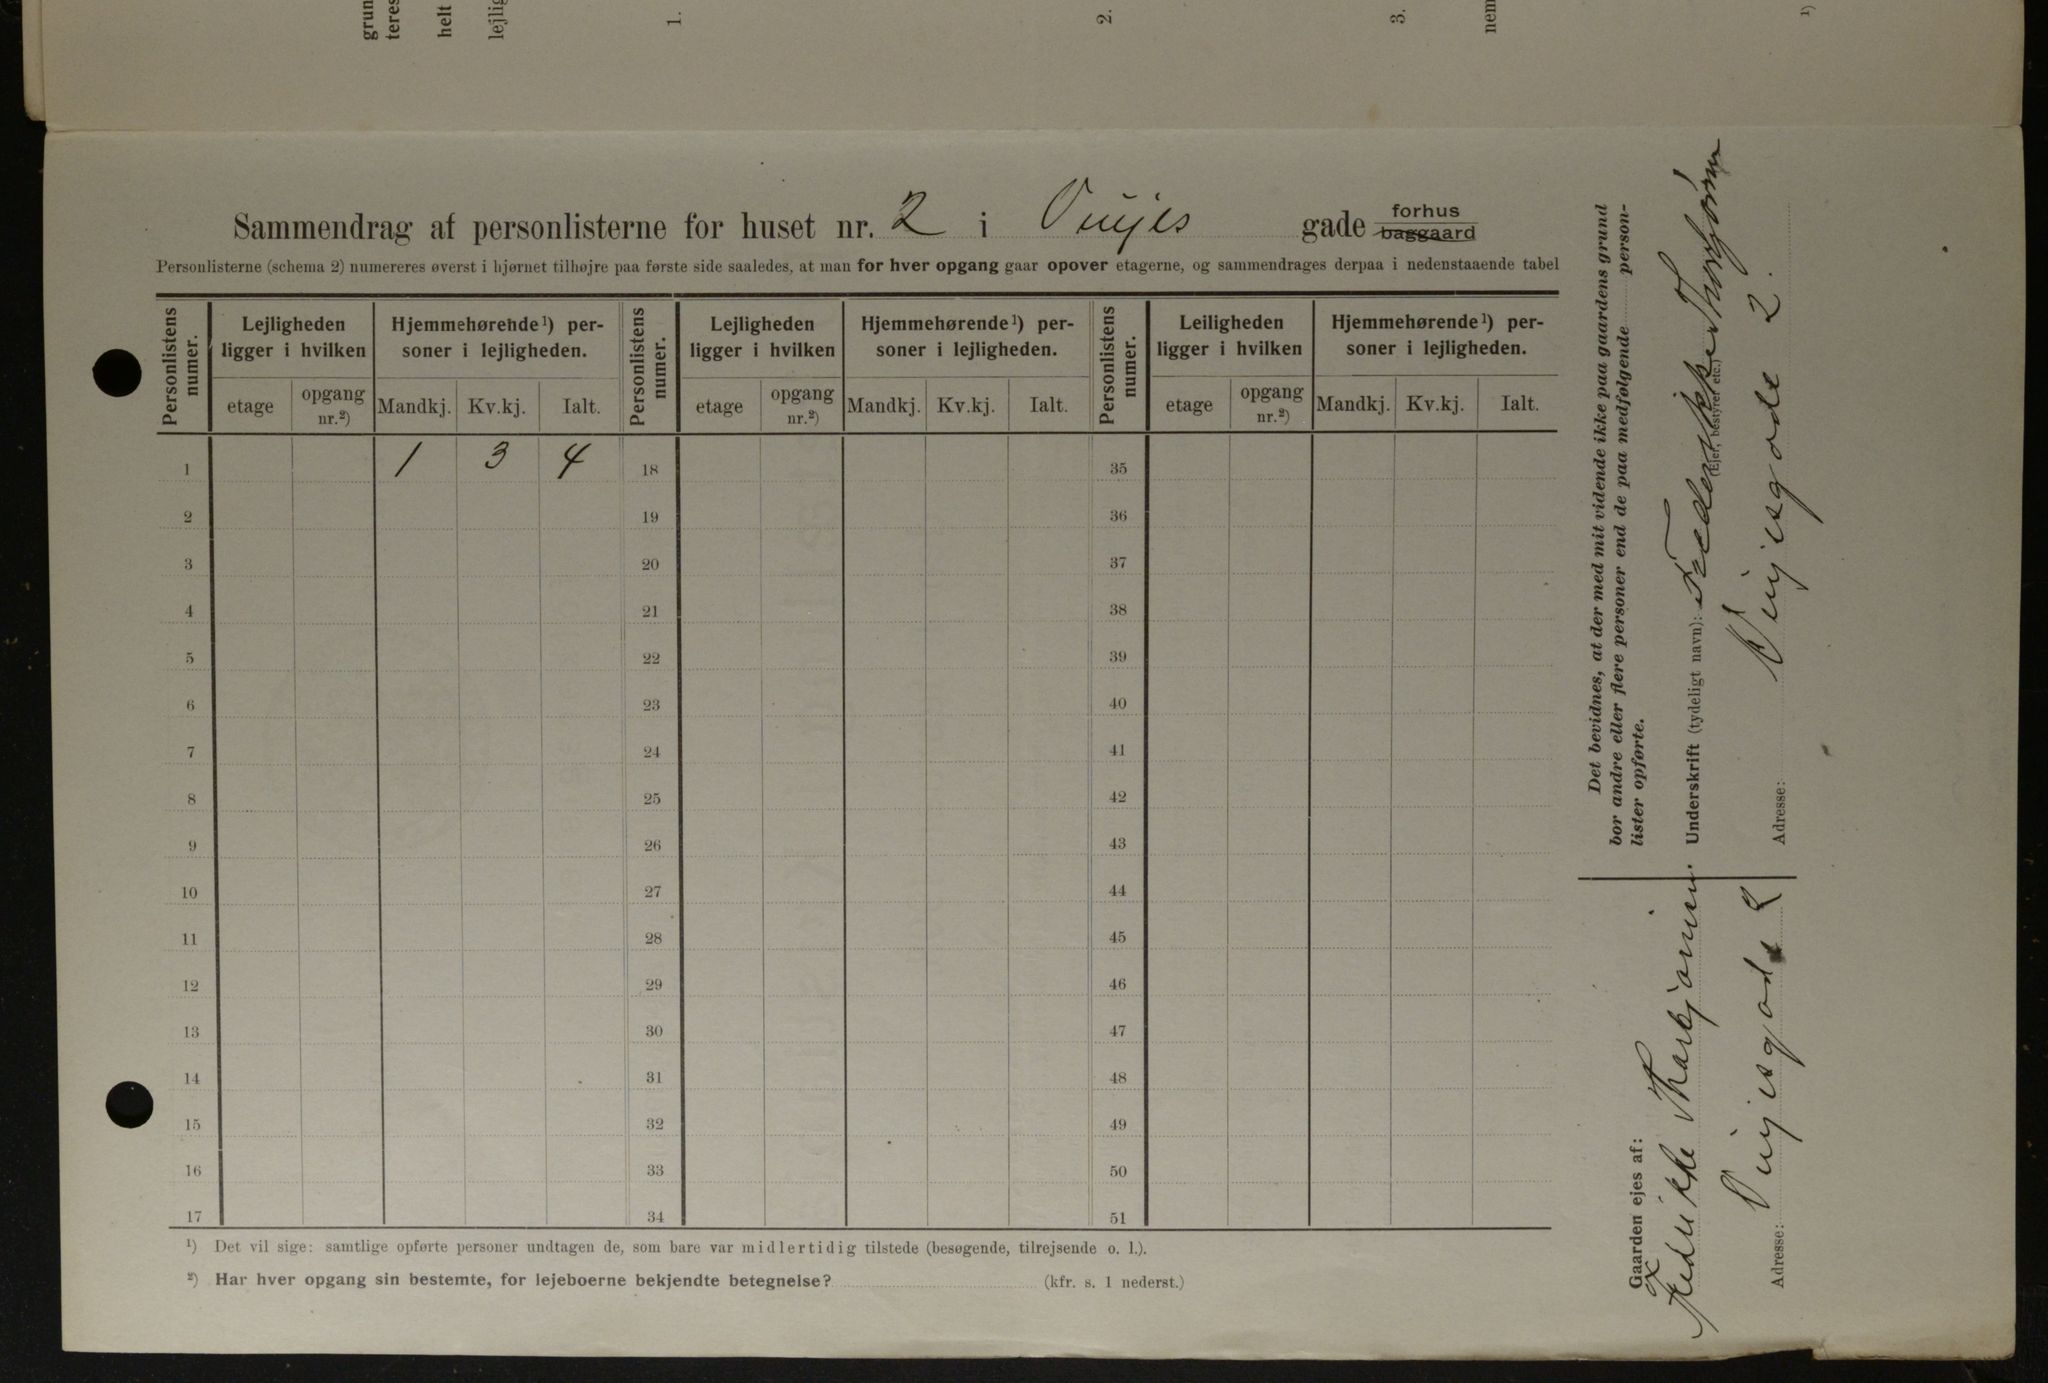 grun
teres
helt
lejlig
1.
2.
3.
nem
1)
Sammendrag af personlisterne for huset nr. 2 i Vinjes gade forhus
baggaard
Personlisterne (schema 2) numereres øverst i hjørnet tilhøjre paa første side saaledes, at man for hver opgang gaar opover etagerne, og sammendrages derpaa i nedenstaaende tabel
Personlistens numer. Lejligheden ligger i hvilken Hjemmehørende¹) personer i lejligheden. Personlistens numer. Lejligheden ligger i hvilken Hjemmehørende¹) personer i lejligheden. Personlistens numer. Leiligheden ligger i hvilken Hjemmehørende¹) personer i lejligheden.
etage opgang nr.²) Mandkj. Kv.kj. Ialt. etage opgang nr.²) Mandkj. Kv.kj. Ialt. etage opgang nr.²) Mandkj. Kv.kj. Ialt.
1 1 3 4 18 35
2 19 36
3 20 37
4 21 38
5 22 39
6 23 40
7 24 41
8 25 42
9 26 43
10 27 44
11 28 45
12 29 46
13 30 47
14 31 48
15 32 49
16 33 50
17 34 51
¹) Det vil sige: samtlige opførte personer undtagen de, som bare var midlertidig tilstede (besøgende, tilrejsende o. l.).
²) Har hver opgang sin bestemte, for lejeboerne bekjendte betegnelse? (kfr. s. 1 nederst.)
Det bevidnes, at der med mit vidende ikke paa gaardens grund
bor andre eller flere personer end de paa medfølgende person-
lister opførte.
Underskrift (tydeligt navn): Frederikke Thorbjørnsen
(Ejer, bestyrer etc.)
Adresse: Vinjesgade 2.
Gaarden ejes af:
Fredrikke Thorbjørnsen.
Adresse: Vinjesgade 2